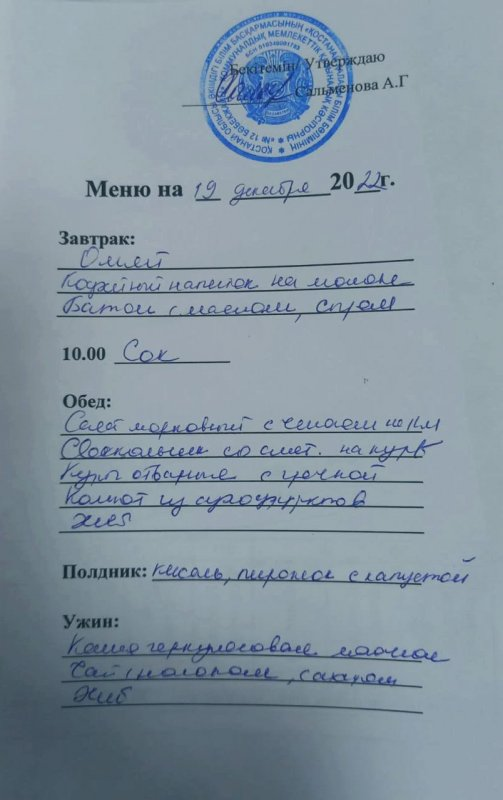 Бекітемін/ Утверждаю
Сальменова А.Г
Меню на 19 декабря 2022г.
Завтрак:
Омлет
Кофейный напиток на молоке
Батон с маслом, сыром
10.00 Сок
Обед:
Салат морковный с
Свекольник со смет. на кур.
Куры отварные с гречкой
Компот из сухофруктов
Хлеб
Полдник: кисель, пирожок с капустой
Ужин:
Каша геркулесовая
Чай с молоком, сахаром
Хлеб